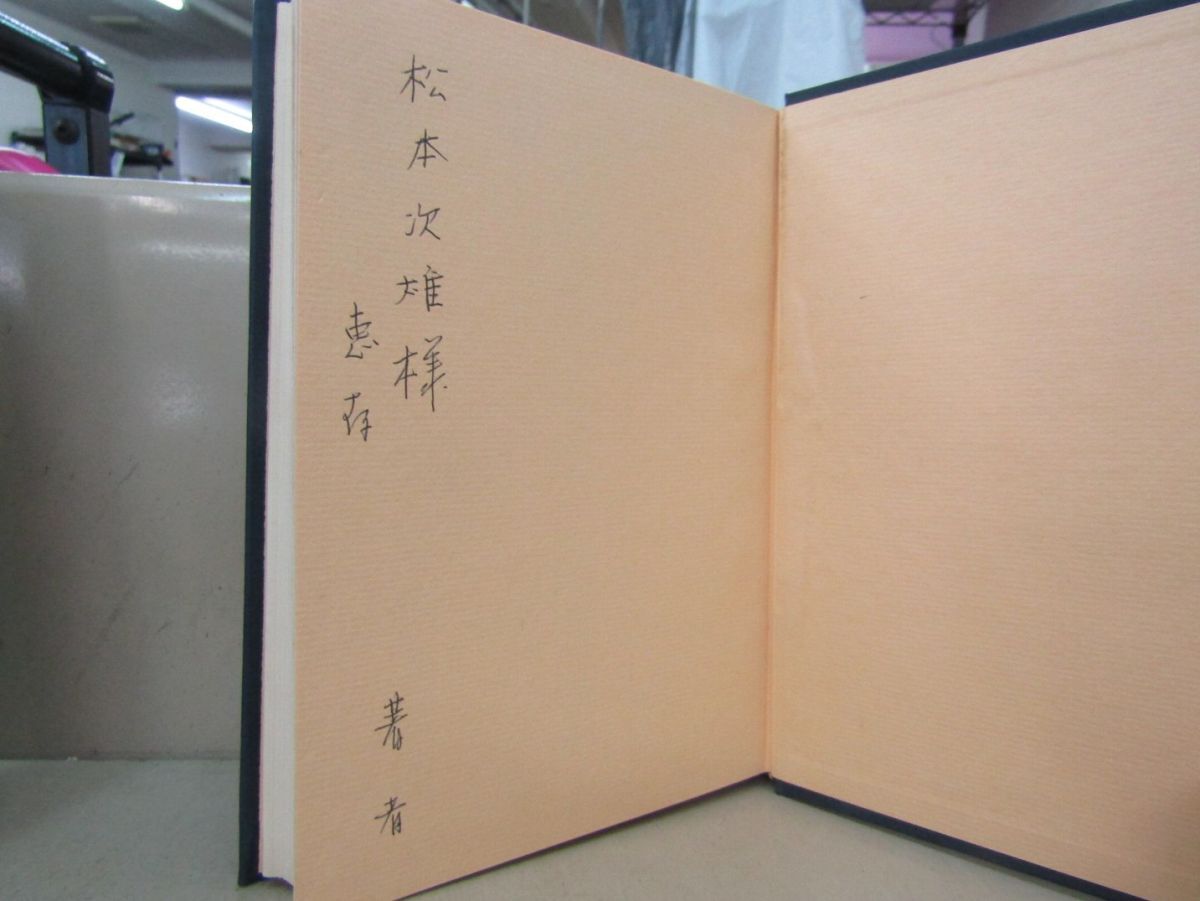 松本次雄様
恵存
著者